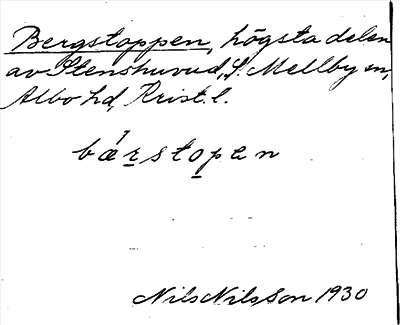 Bergstoppen, högsta delen
av Stenshuvud, S. Mellby sn,
Albo hd, Krist. l.
bærstopen
Nils Nilsson 1930